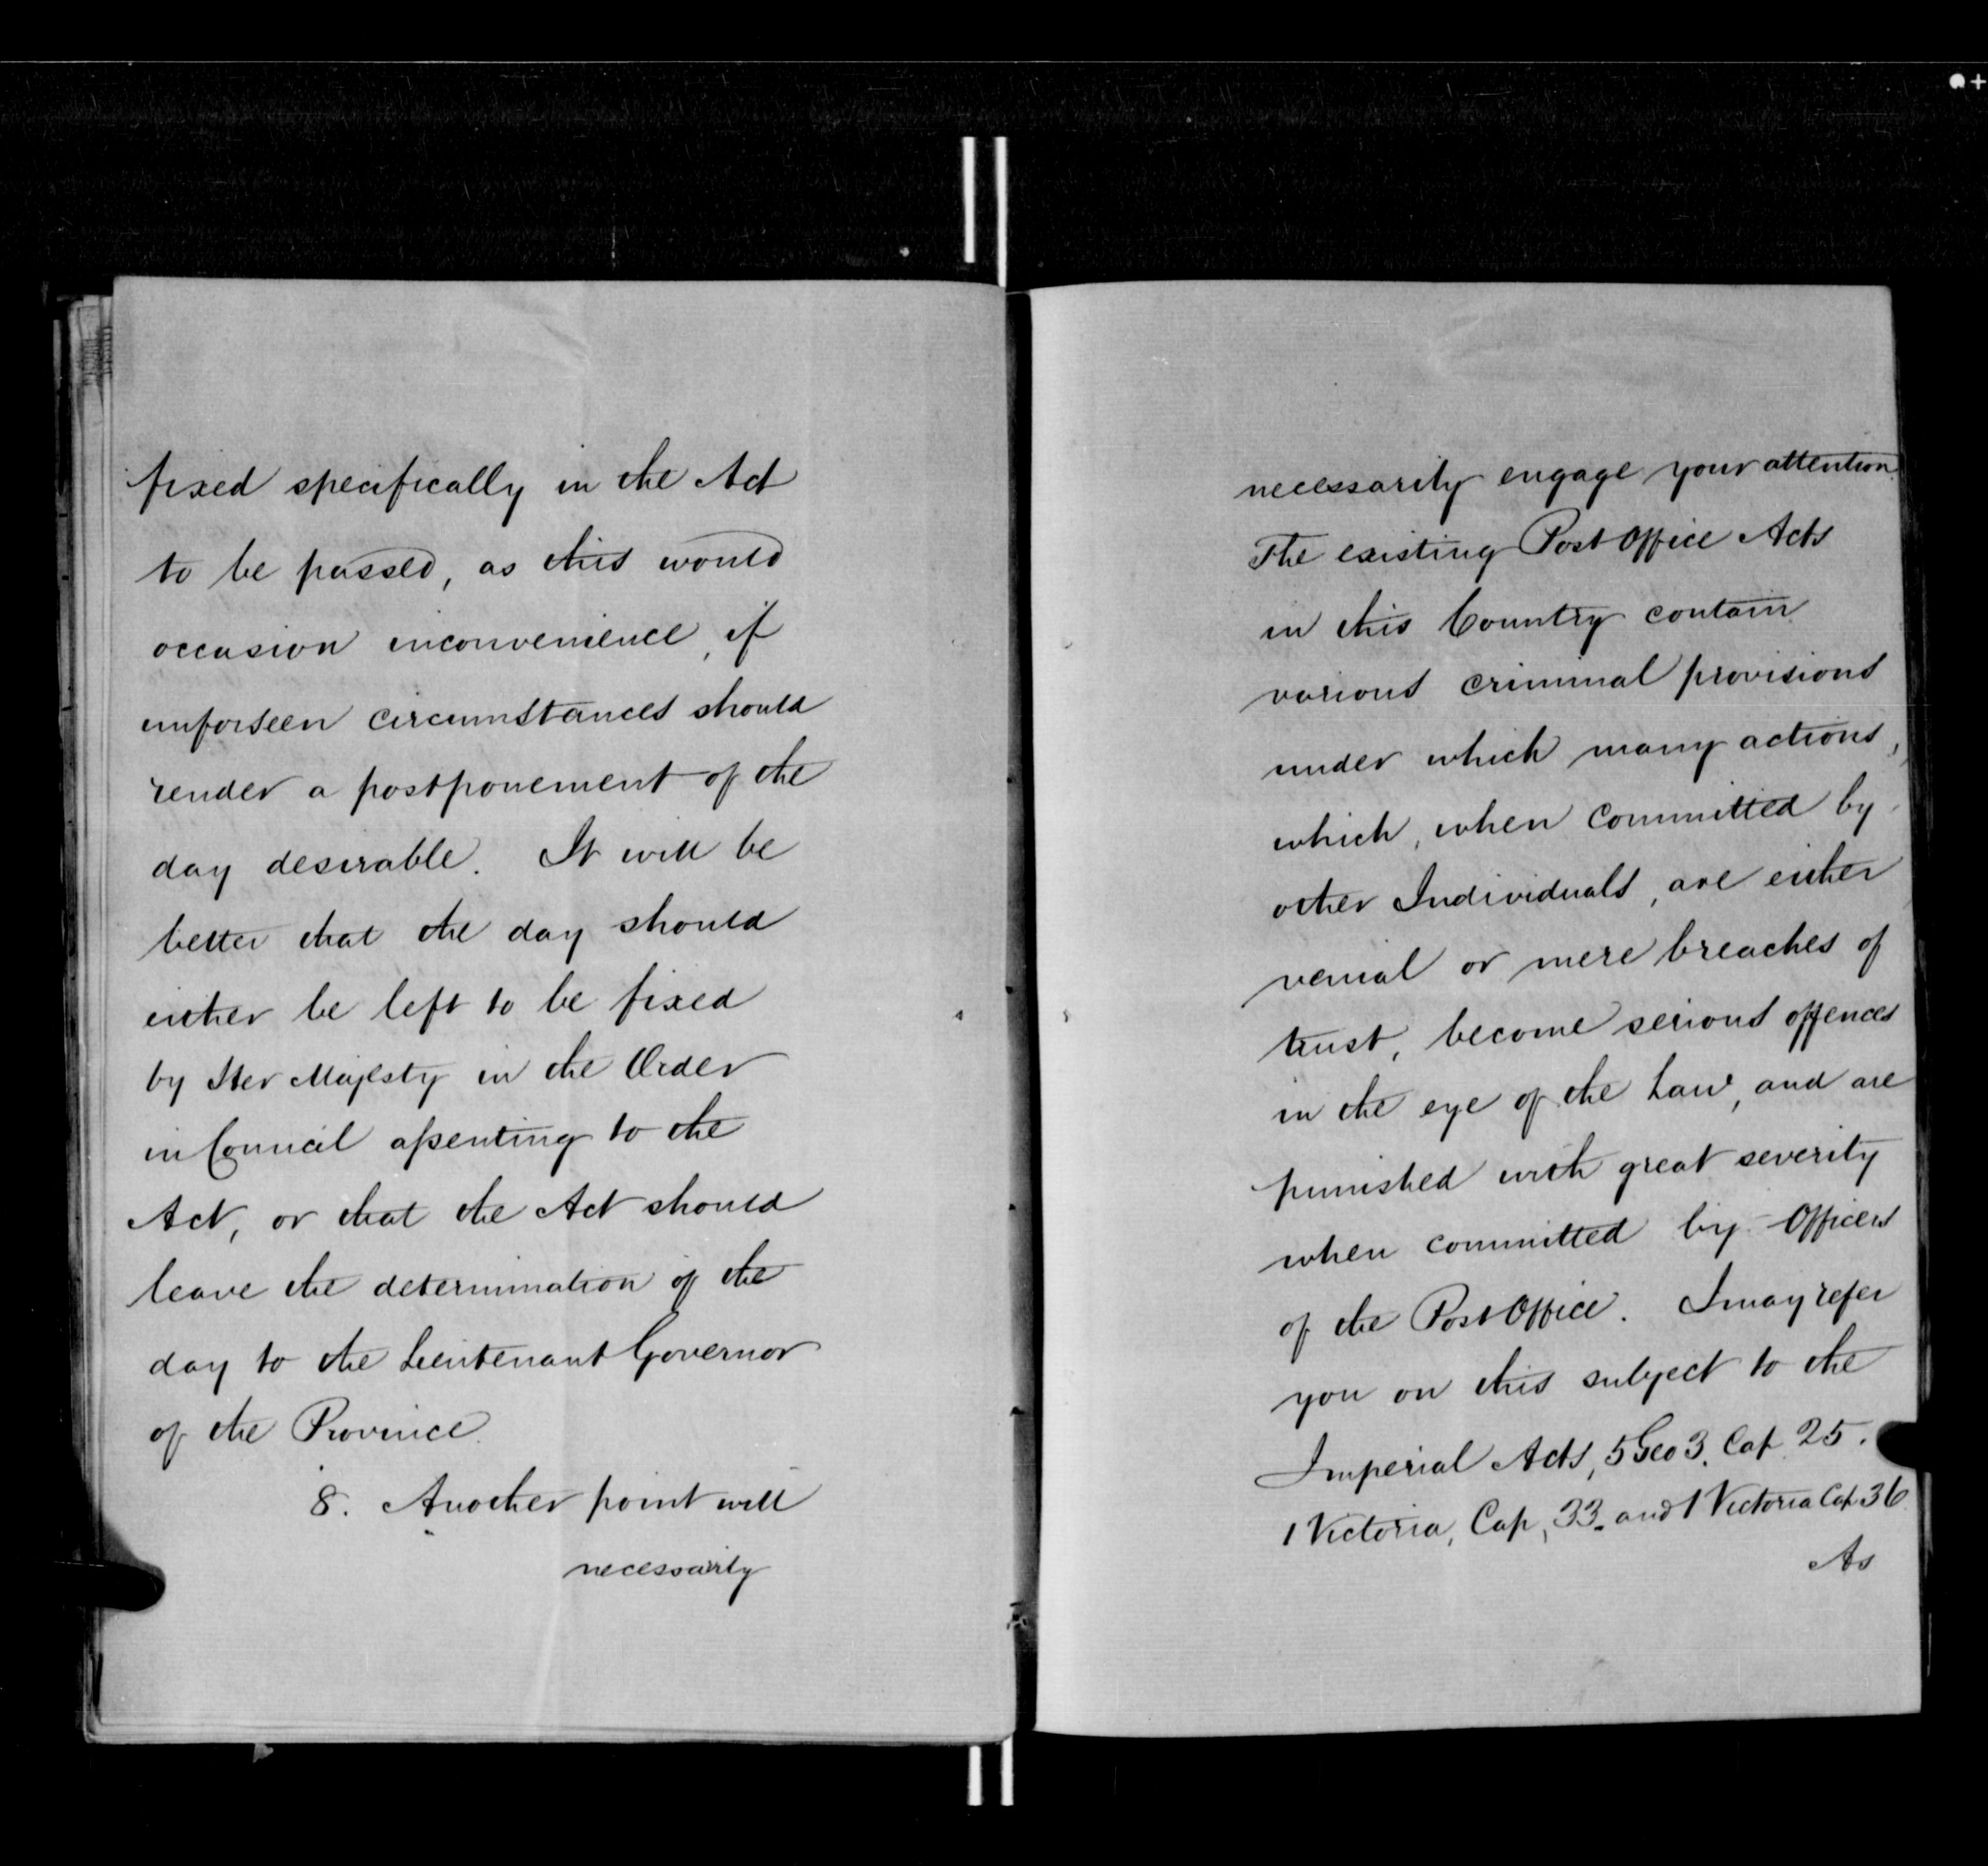 fixed specifically in the Act
to be passed, as this would
occasion inconvenience, if
unforseen circumstances should
render a postponement of the
day desirable. It will be
better that the day should
either be left to be fixed
by Her Majesty in the Order
in Council assenting to the
Act, or that the Act should
leave the determination of the
day to the Lieutenant Governor
of the Province.
8. Another point will
necessarily
necessarily engage your attention.
The existing Post Office Acts
in this Country contain
various criminal provisions
under which many actions,
which, when committed by
other Individuals, are either
venial or mere breaches of
trust, become serious offences
in the eye of the Law, and are
punished with great severity
when committed by Officers
of the Post Office. I may refer
you on this subject to the
Imperial Acts, 5 Geo 3. Cap 25.
1 Victoria, Cap, 33. and 1 Victoria Cap 36
As